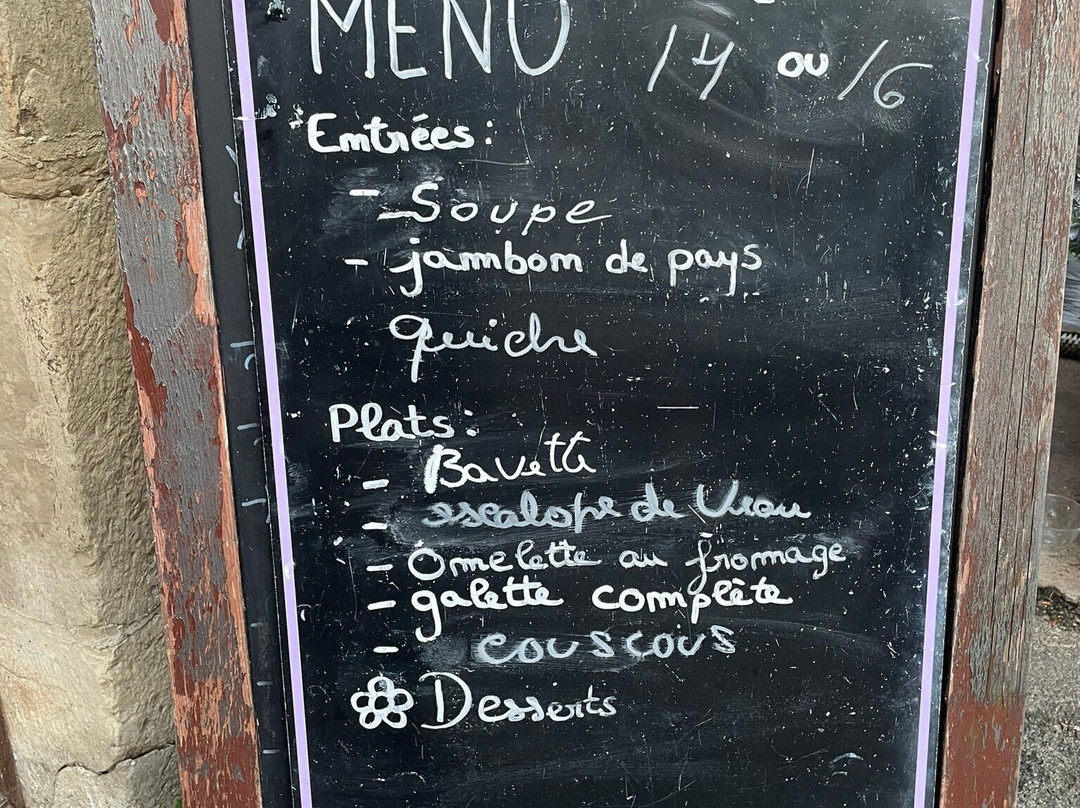 MENU 14 ou 16
Entrées:
- Soupe
- jambon de pays
quiche
Plats:
- Bavette
- escalope de Veau
- Omelette au fromage
- galette complète
- couscous
Desserts